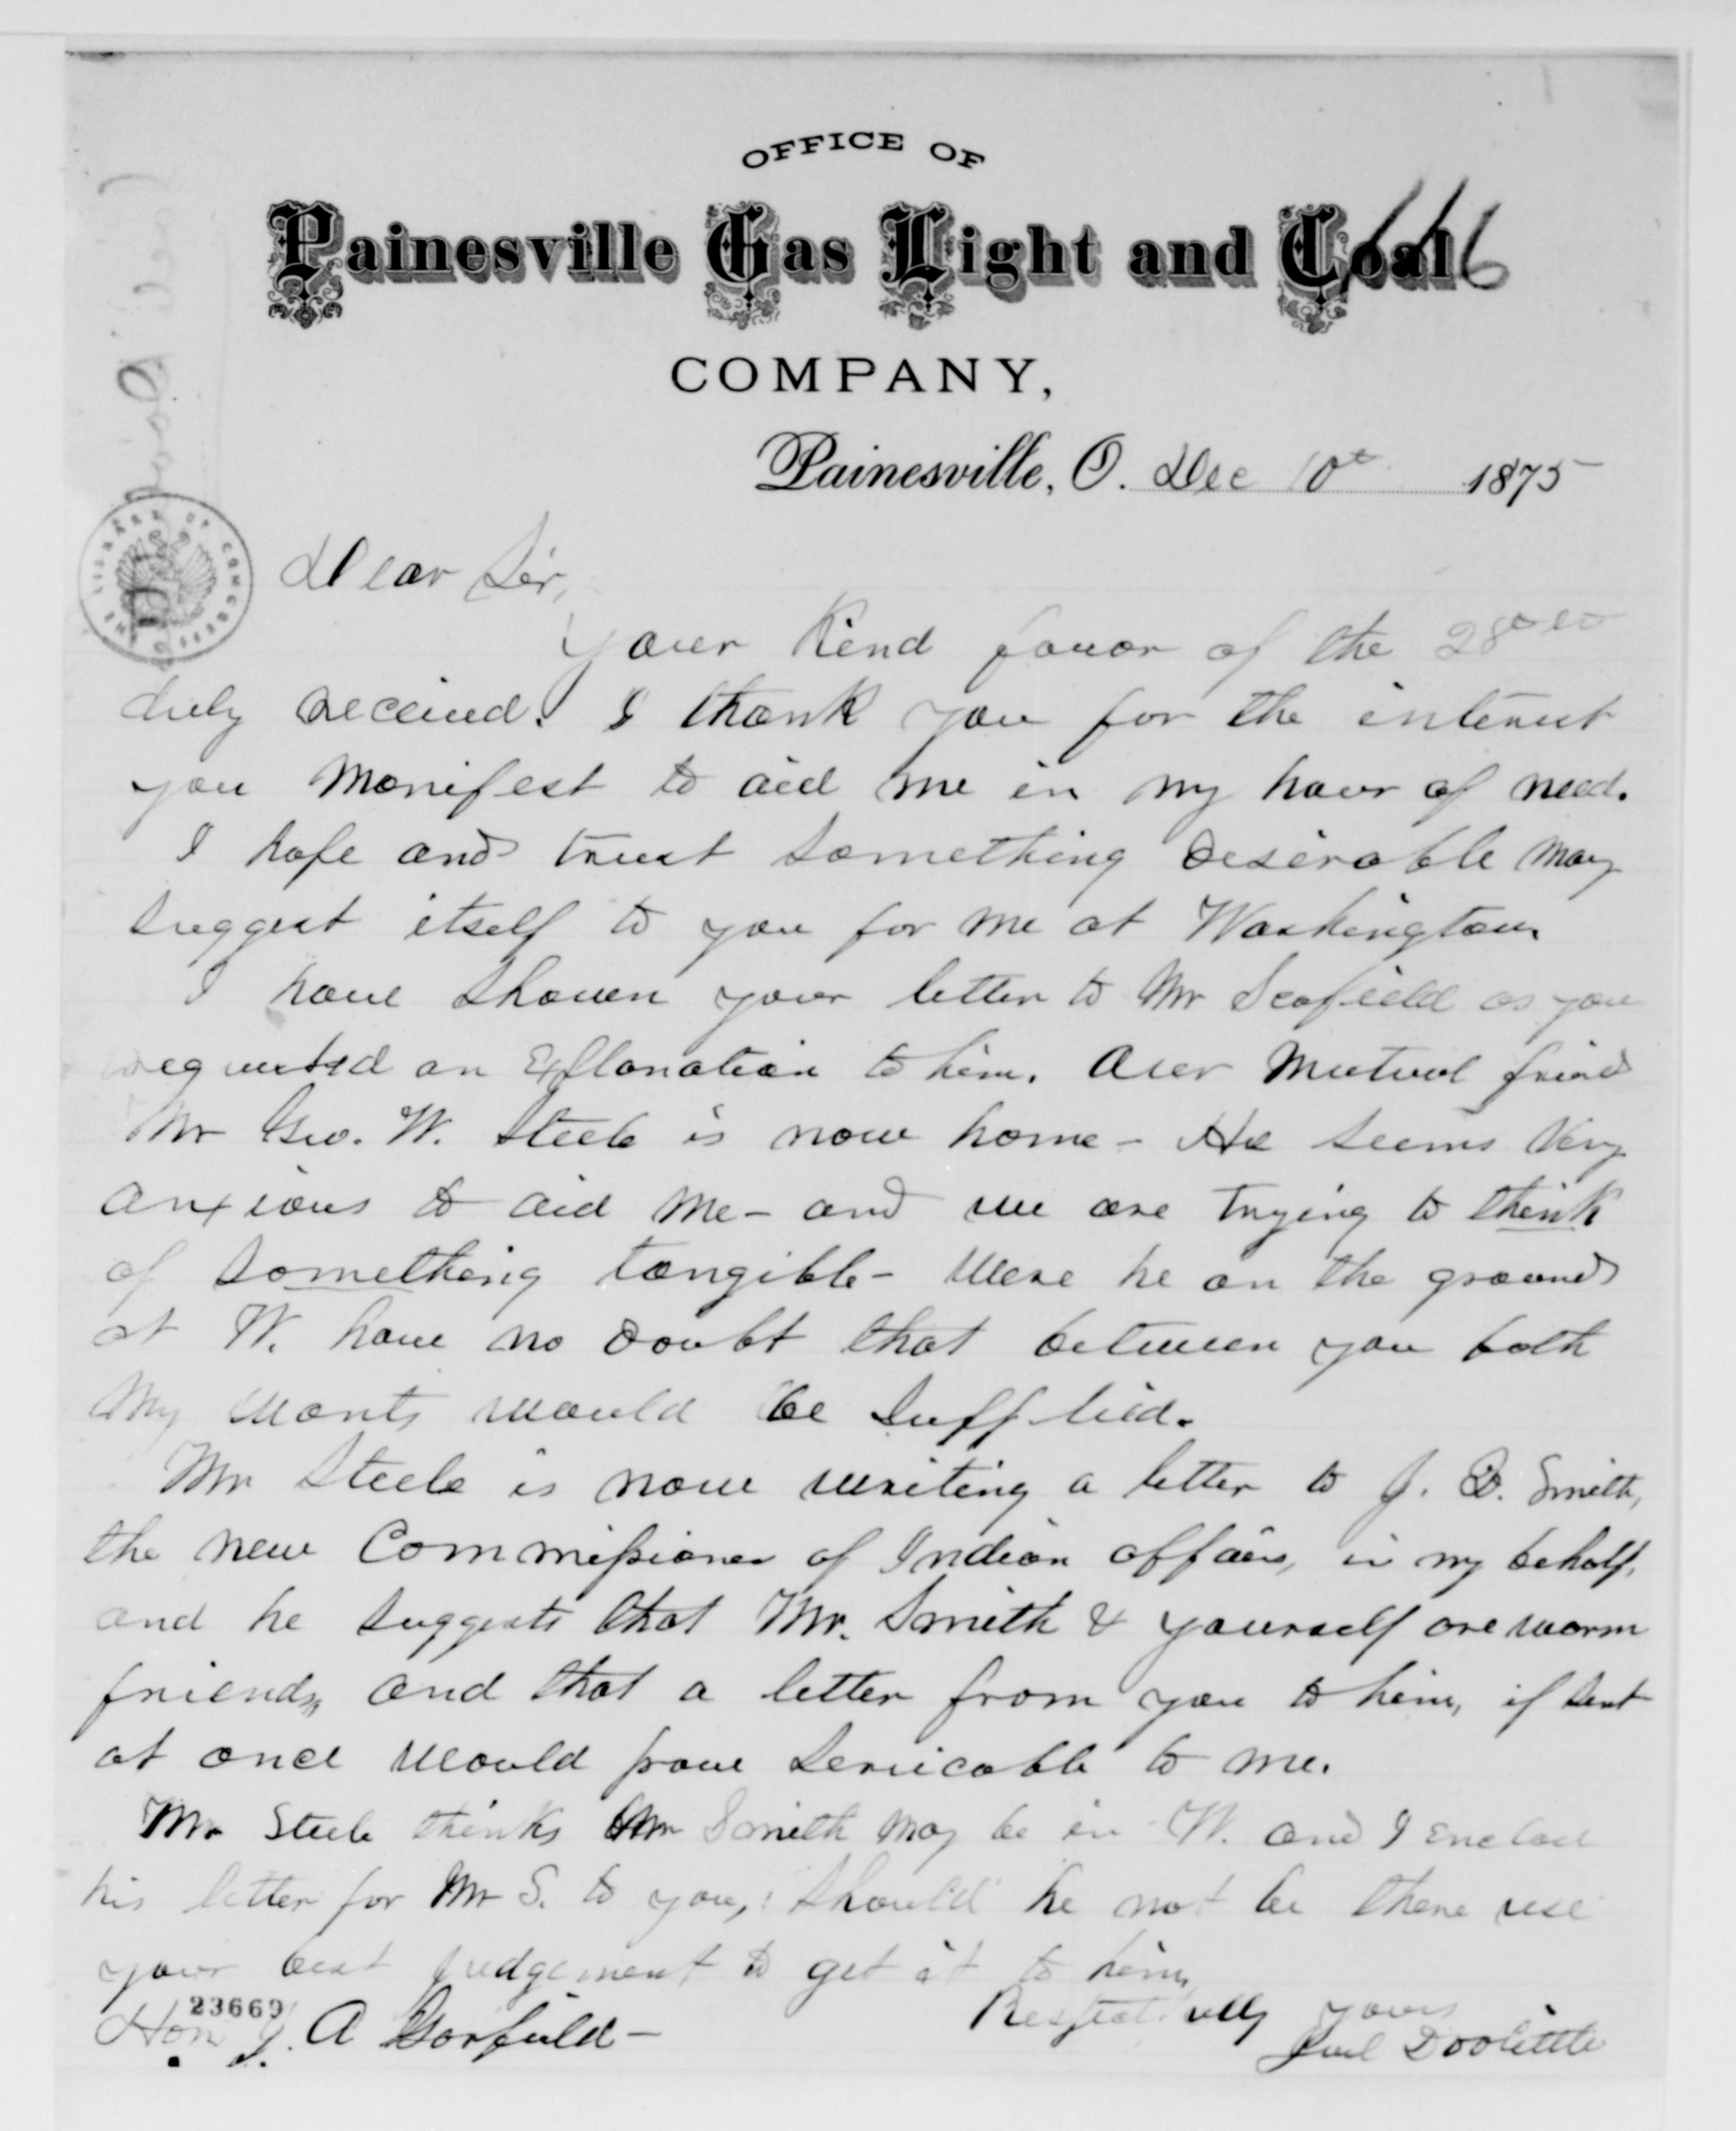 OFFICE OF
Painesville Gas Light and Coal
COMPANY,
Painesville, O. Dec 10th 1875
Dear Sir,
Your kind favor of the 28th
duly received. I thank you for the interest
you Manifest to aid me in my hour of need.
I hope and trust something desirable may
suggest itself to you for me at Washington
I have shown your letter to Mr Scofield as you
requested an Explanation to him. Our Mutual friend
Mr Geo. W. Steele is now home - He seems very
anxious to aid me - and we are trying to think
of something tangible - Were he on the ground
at W. have no doubt that between you both
My wants would be supplied.
Mr Steele is now writing a letter to J. Q. Smith,
the new Commissioner of Indian affairs, in my behalf,
and he suggests that Mr. Smith & yourself are warm
friends, and that a letter from you to him, if sent
at once would prove servicable to me.
Mr Steele thinks Mr Smith may be in W. and I enclose
his letter for Mr S. to you, should he not be there use
your best judgement to get it to him,
Respectfully yours
Doolittle
Hon J. A Garfield -
23669
THE LIBRARY OF CONGRESS